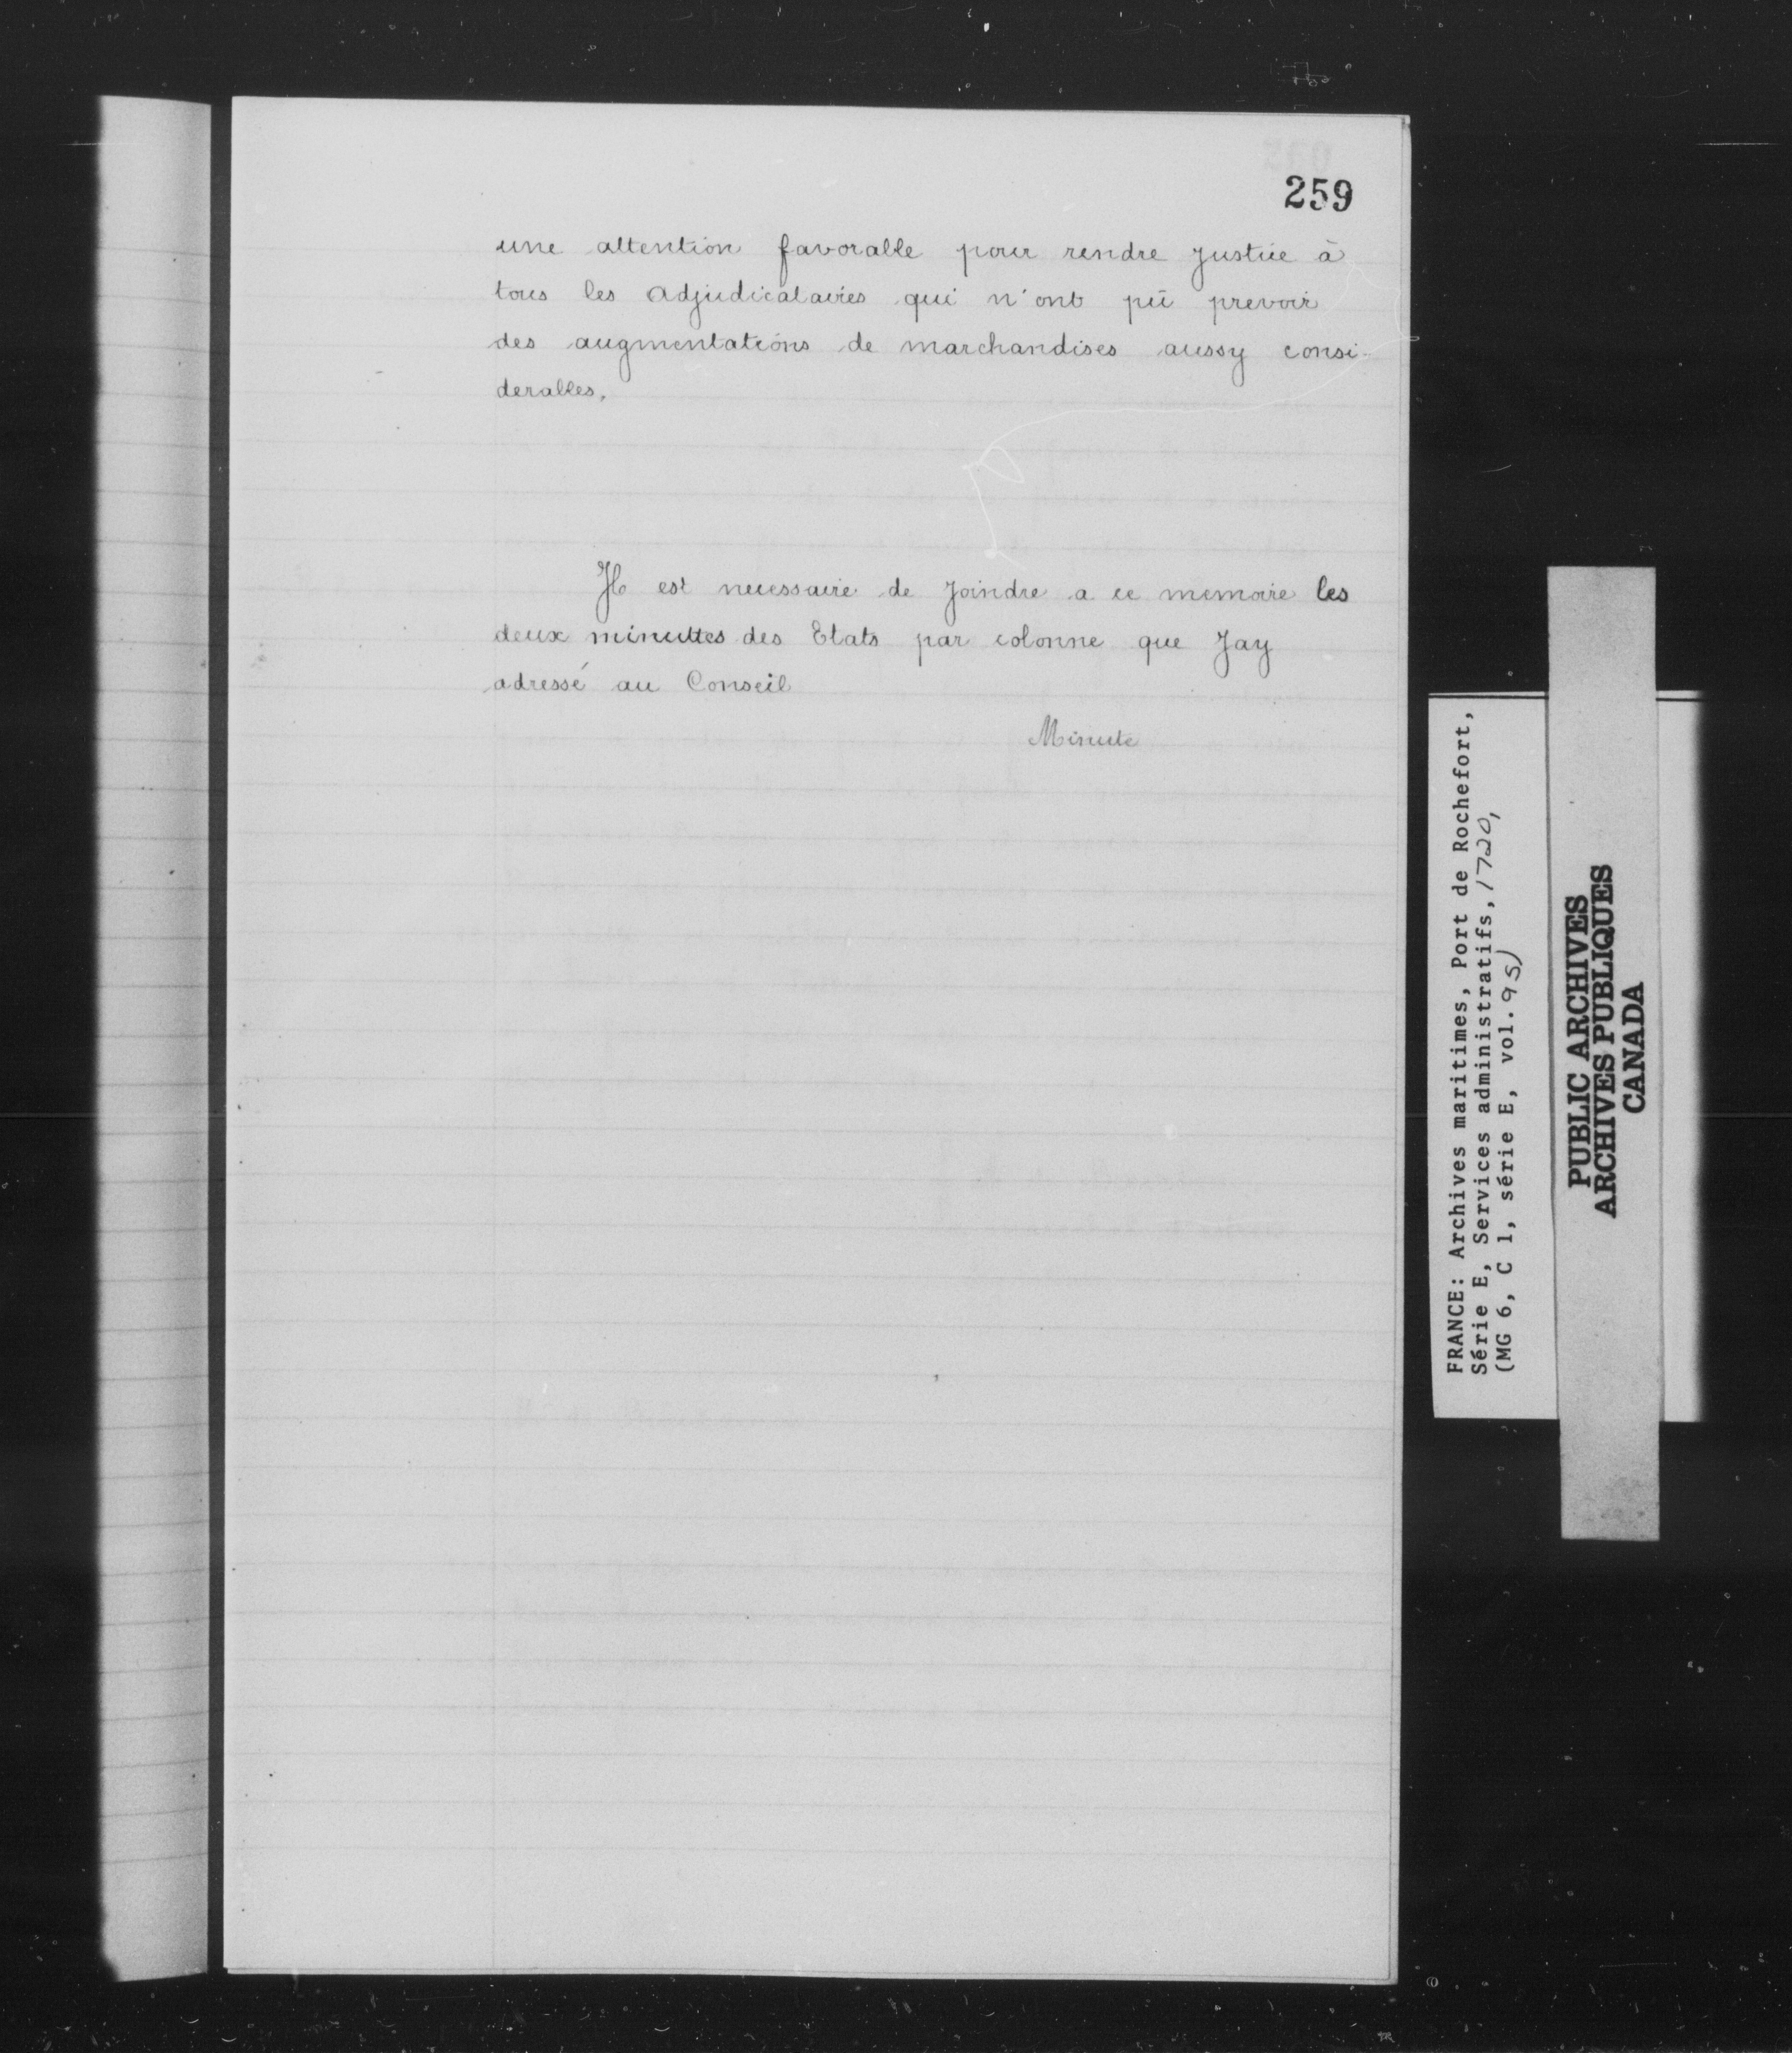 259
une attention favorable pour rendre justice à
tous les adjudicataires qui n'ont pû prevoir
des augmentations de marchandises aussy consi-
derables.
Il est necessaire de Joindre a ce memoire les
deux minuttes des Etats par colonne que Jay
adressé au Conseil
Minute
FRANCE: Archives maritimes, Port de Rochefort,
Série E, Services administratifs, 1720,
(MG 6, C 1, série E, vol. 95)
PUBLIC ARCHIVES
ARCHIVES PUBLIQUES
CANADA